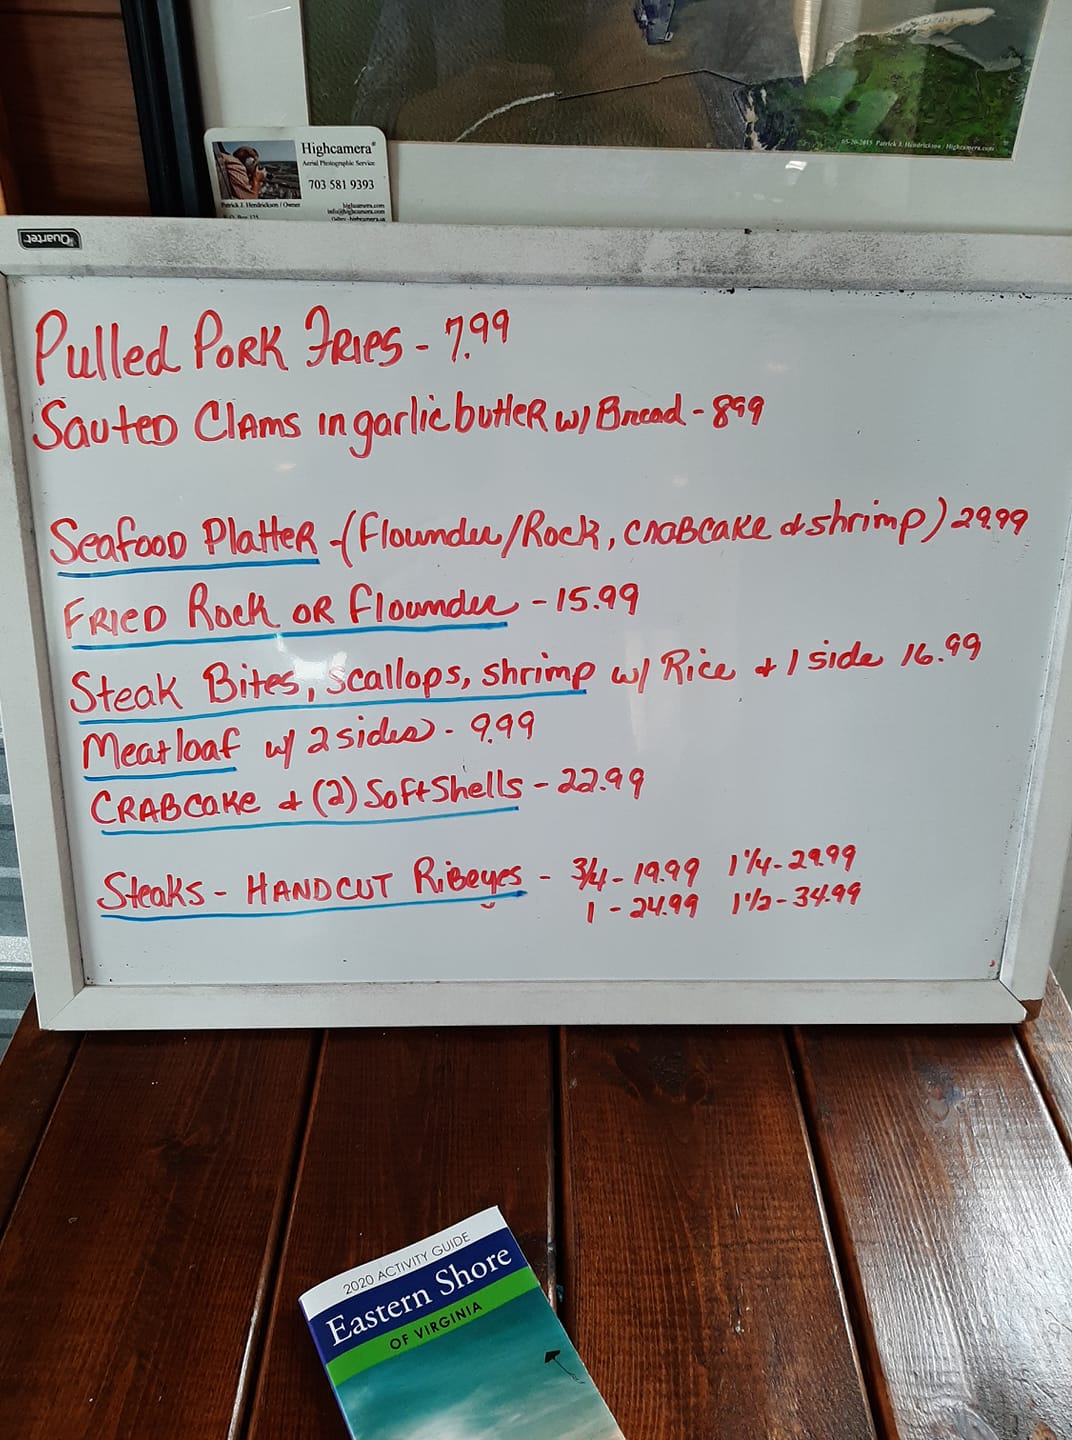 05-20-2015 Patrick J. Hendrickson / Highcamera.com
Highcamera®
Aerial Photographic Service
703 581 9393
Patrick J. Hendrickson / Owner
highcamera.com
info@highcamera.com
P.O. Box 125
Quartet
Pulled PORK FRIES - 7.99
Sauted Clams in garlic butter w/ Bread - 899
Seafood Platter - (Flounder/Rock, CRABCAKE & shrimp) 29.99
FRIED Rock OR Flounder - 15.99
Steak Bites, Scallops, shrimp w/ Rice & 1 side 16.99
Meatloaf w/ 2 sides - 9.99
CRABCAKE & (2) Soft Shells - 22.99
Steaks - HANDCUT Ribeyes - 3/4 - 19.99 1 1/4 - 29.99
1 - 24.99 1 1/2 - 34.99
2020 ACTIVITY GUIDE
Eastern Shore
OF VIRGINIA